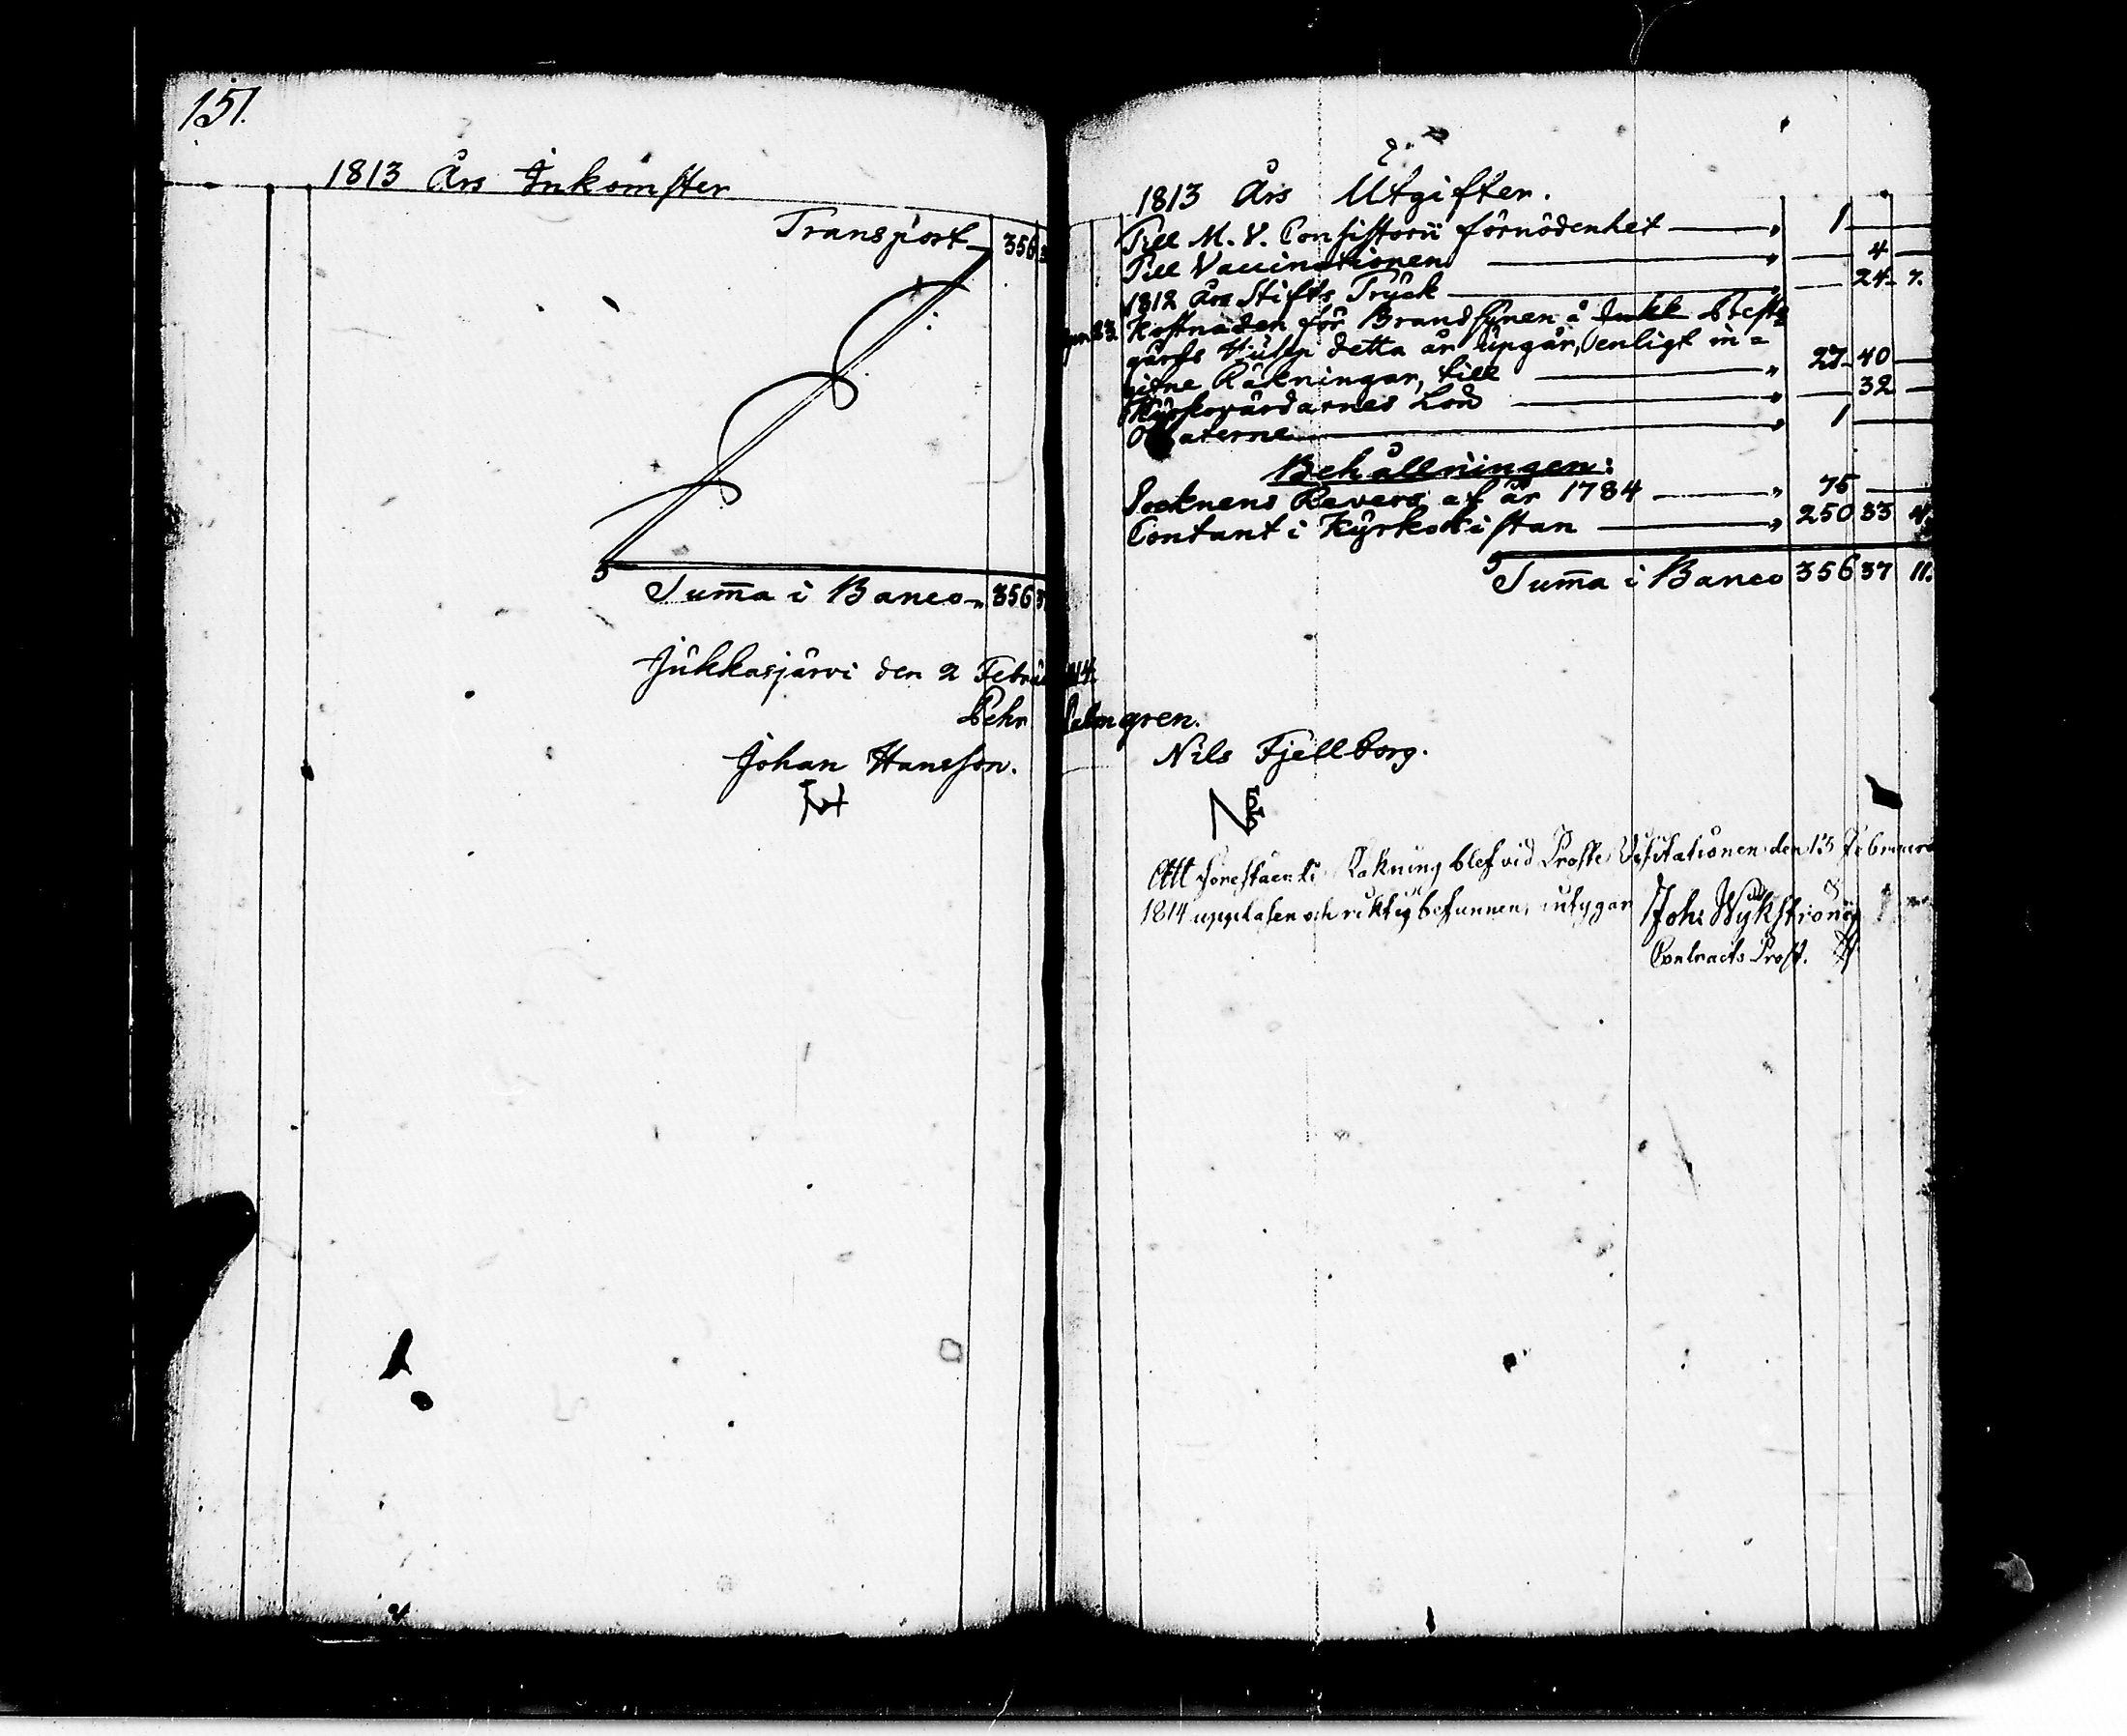 151.
1813 Års Inkomster
Transport 356
Summa i Banco 356
Jukkasjärvi den 2 Februa 1814.
Pehr Palmgren.
Johan Hansson. Nils Fjellborg.
1813 Års Utgifter.
Till M. V. Consistorii förnödenhet — " 1 —
Till Vaccinationen — " — 4 —
1812 Års Stifts Tryck — " — 24 7.
Kostnaden för Brandsynen å Jukk Prest=
gårds Husen detta år upgår, enligt in=
gifne Räkningar, till — " 27 40 —
Kyrkovärdarnes Lön — " — 32 —
Oblaterne — " 1 —
Behållningen:
Socknens Revers af år 1784 — " 75 —
Contant i Kyrkokistan — " 250 33 4.
Summa i Banco 356 37 11.
Att förestående Räkning blef vid Prosts Visitationen den 13 Februari
1814 uppläsen och riktig befunnen, intygar Joh: Wykström
Contracts Prost.